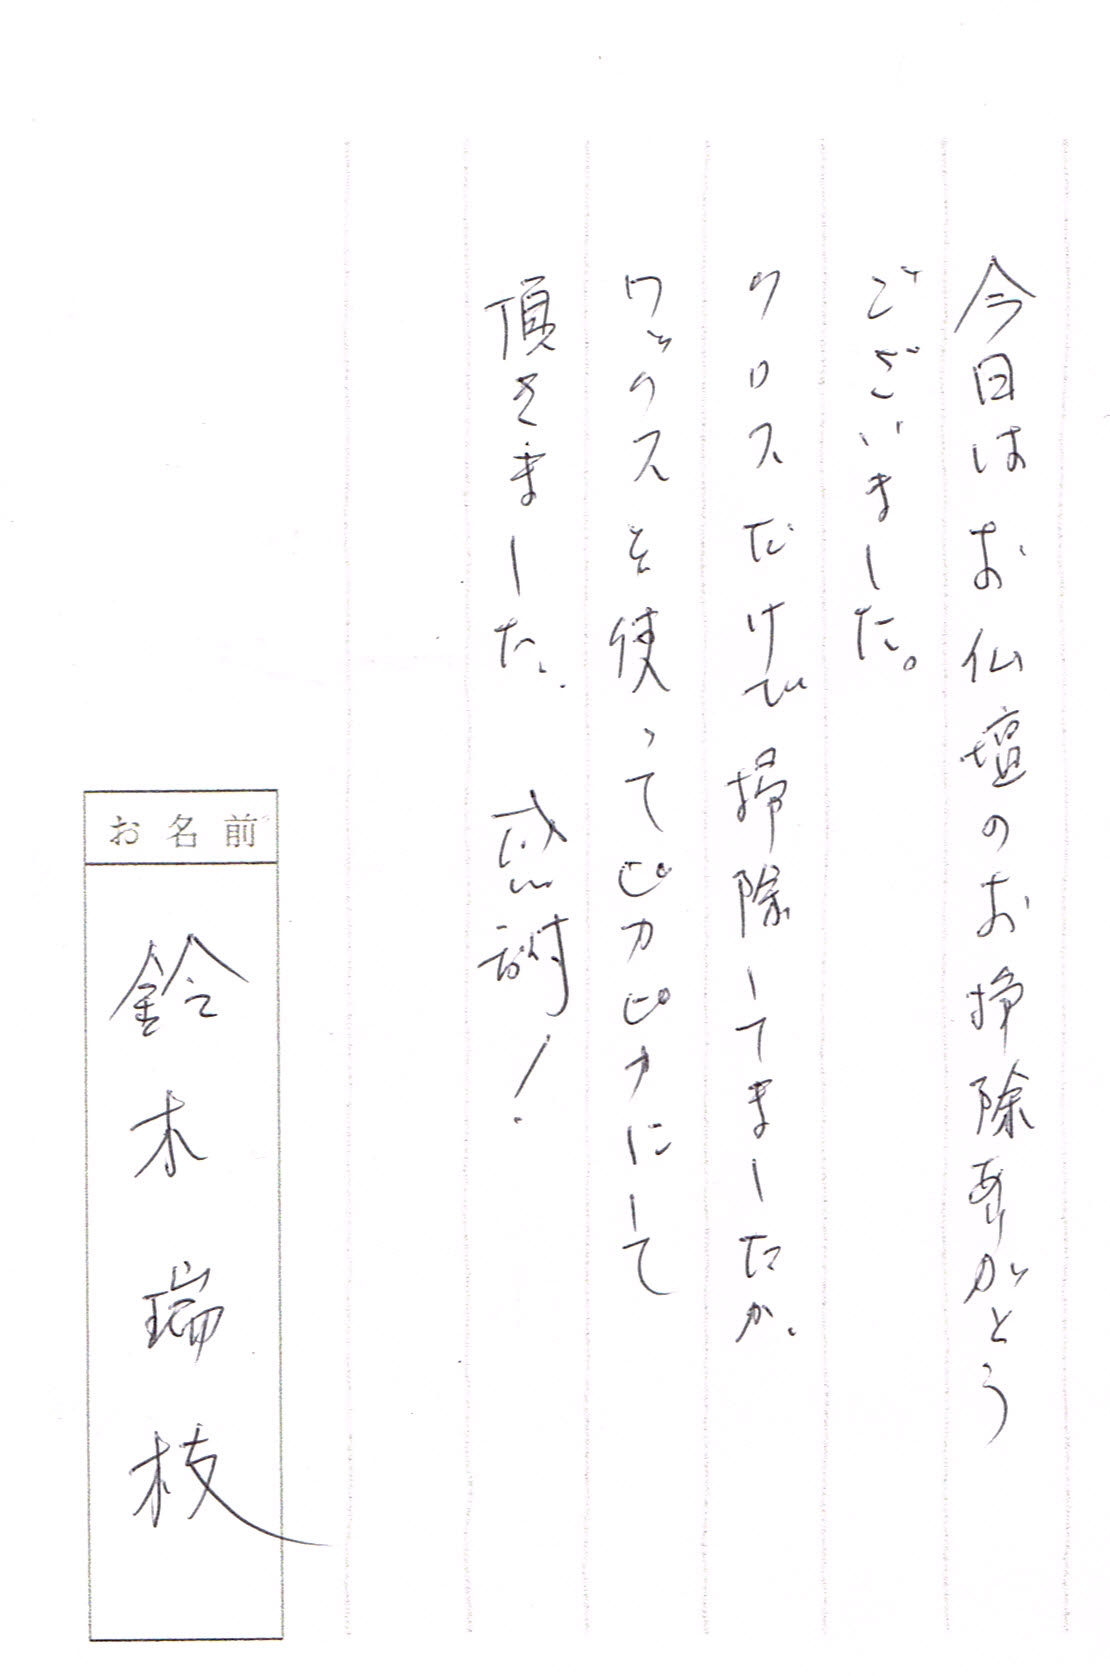 今日はお仏壇のお掃除ありがとう
ございました。
クロスだけで掃除してましたが、
ワックスを使ってピカピカにして
頂きました。 感謝!
お名前
鈴木瑞枝